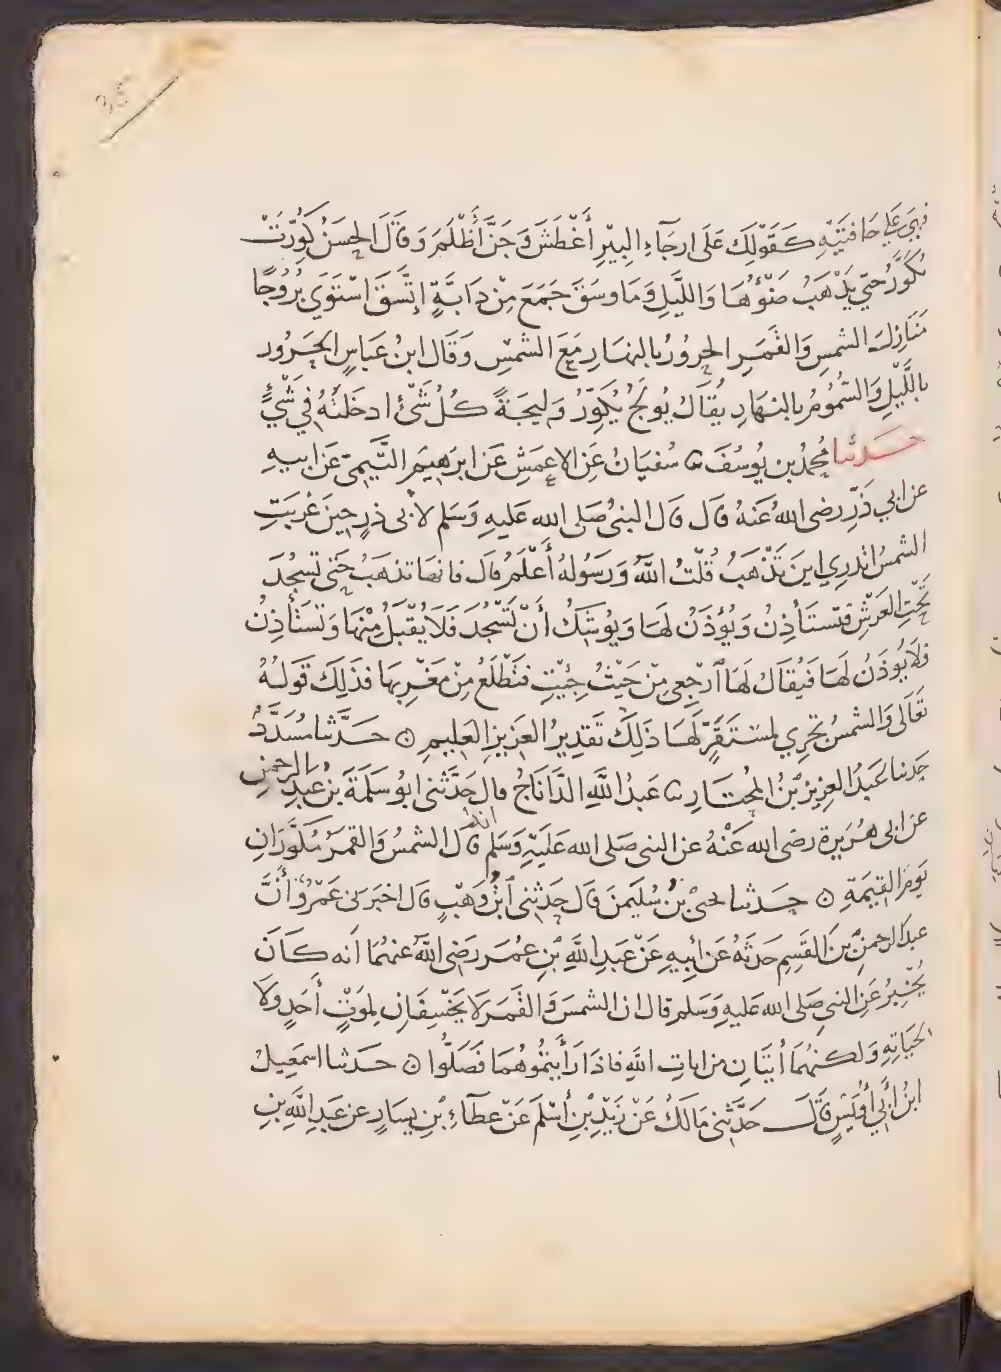 35
فهي على حافتيه كقولك على ارجآء البير أغطش وجن أظلم وقال الحسن كورت
تكور حتى يذهب ضوؤها والليل وما وسق جمع من دابة إتسق استوي بروجا
منازل الشمس والقمر الحرور بالنهار مع الشمس وقال ابن عباس الحرور
بالليل والسموم بالنهار يقال يولج يكور وليجة كل شئ ادخلته في شئ
حدثنا محمد بن يوسف نا سفيان عن الاعمش عن ابرهيم التيمي عن ابيه
عن ابي ذر رضى الله عنه قال قال النبي صلى الله عليه وسلم لابى ذر حين غربت
الشمس اتدري اين تذهب قلت الله ورسوله أعلم قال فانها تذهب حتى تسجد
تحت العرش فتستأذن ويؤذن لها ويوشك أن تسجد فلا يقبل منها وتستأذن
فلا يوذن لها فيقال لها ارجعى من حيث جيت فتطلع من مغربها فذلك قوله
تعالى والشمس تجري لمستقر لها ذلك تقدير العزيز العليم ۞ حدثنا مسدد
حدثنا عبد العزيز بن المختار نا عبد الله الداناج قال حدثنى ابو سلمة بن عبد الرحمن
عن ابى هريرة رضى الله عنه عن النبى صلى الله عليه وسلم انه قال الشمس والقمر مكوران
يوم القيمة ۞ حدثنا يحيى بن سليمن قال حدثنى ابن وهب قال اخبرنى عمرو أن
عبد الرحمن بن القسم حدثه عن ابيه عن عبد الله بن عمر رضى الله عنهما انه كان
يخبر عن النبي صلى الله عليه وسلم قال ان الشمس والقمر لا يخسفان لموت أحد ولا
لحياته ولكنهما أيتان من ايات الله فاذا رأيتموهما فصلوا ۞ حدثنا اسمعيل
ابن أبي أويس قال حدثنى مالك عن زيد بن أسلم عن عطاء بن يسار عن عبد الله بن